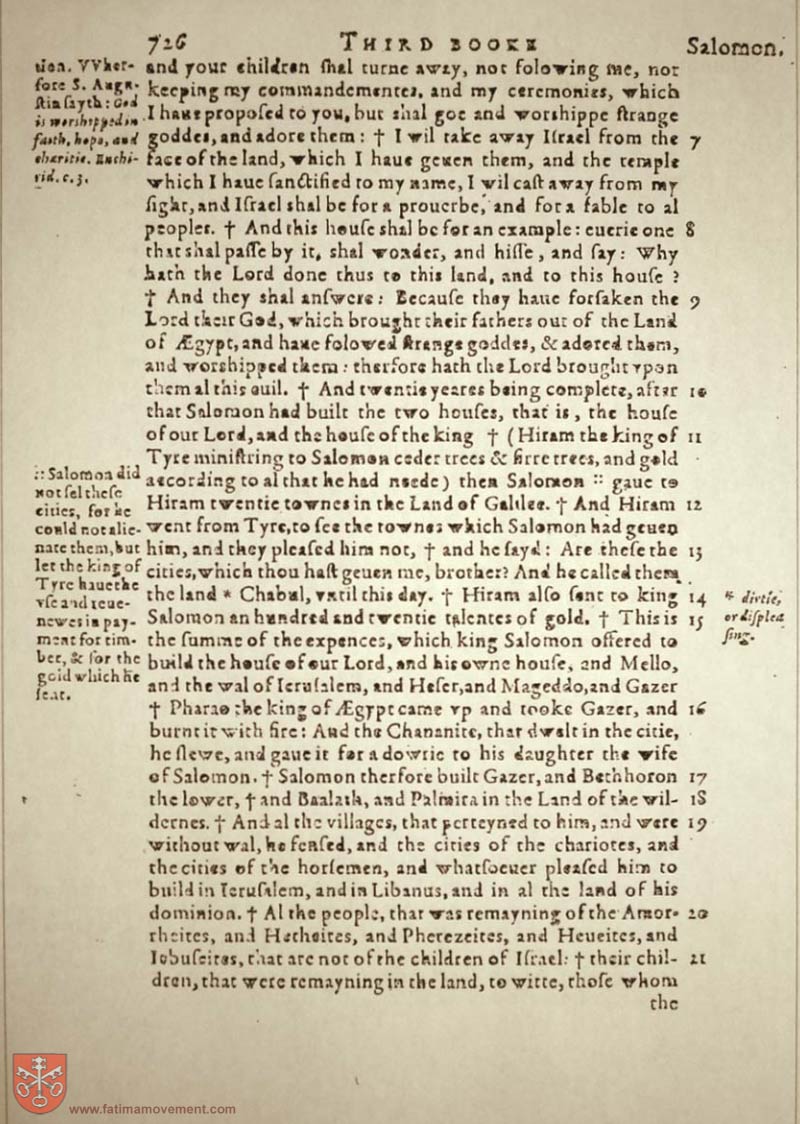 726 THIRD BOOKE Salomon.
tion. VVher-
fore S. Augu-
ſtin ſayth: God
is worshipped in
faith, hope, and
charitie. Enchi-
rid. c. 3.
and your children ſhal turne away, not folowing me, nor
keeping my commandementes, and my ceremonies, which
I haue propoſed to you, but shal goe and worshippe ſtrange
goddes, and adore them: † I wil take away Iſrael from the 7
face of the land, which I haue geuen them, and the temple
which I haue ſanctified to my name, I wil caſt away from my
ſight, and Iſrael shal be for a prouerbe, and for a fable to al
peoples. † And this houſe shal be for an example: euerie one 8
that shal paſſe by it, shal wonder, and hiſſe, and ſay: Why
hath the Lord done thus to this land, and to this houſe?
† And they shal anſwere: Becauſe they haue forſaken the 9
Lord their God, which brought their fathers out of the Land
of Ægypt, and haue folowed ſtrange goddes, & adored them,
and worshipped them: therfore hath the Lord brought vpon
them al this euil. † And twentie yeares being complete, after 10
that Salomon had built the two houſes, that is, the houſe
of our Lord, and the houſe of the king † (Hiram the king of 11
Tyre miniſtring to Salomon ceder trees & firre trees, and gold
according to al that he had neede) then Salomon :: gaue to
Hiram twentie townes in the Land of Galilee. † And Hiram 12
went from Tyre, to ſee the townes which Salomon had geuen
him, and they pleaſed him not, † and he ſayd: Are theſe the 13
cities, which thou haſt geuen me, brother? And he called them
the land * Chabul, vntil this day. † Hiram alſo ſent to king 14
Salomon an hundred and twentie talentes of gold. † This is 15
the ſumme of the expences, which king Salomon offered to
build the houſe of our Lord, and his owne houſe, and Mello,
and the wal of Ieruſalem, and Heſer, and Mageddo, and Gazer
† Pharao the king of Ægypt came vp and tooke Gazer, and 16
burnt it with fire: And the Chananite, that dwelt in the citie,
he ſlewe, and gaue it for a dowrie to his daughter the wife
of Salomon. † Salomon therfore built Gazer, and Bethhoron 17
the lower, † and Baalath, and Palmira in the Land of the wil- 18
dernes. † And al the villages, that perteyned to him, and were 19
without wal, he fenſed, and the cities of the chariotes, and
the cities of the horſemen, and whatſoeuer pleaſed him to
build in Ieruſalem, and in Libanus, and in al the land of his
dominion. † Al the people, that was remayning of the Amor- 20
rheites, and Hetheites, and Pherezeites, and Heueites, and
Iebuſeites, that are not of the children of Iſrael: † their chil- 21
dren, that were remayning in the land, to witte, thoſe whom
the
:: Salomon did
not ſel theſe
cities, for he
could not alie-
nate them, but
let the king of
Tyre haue the
vſe and reue-
newes in pay-
ment for tim-
ber, & for the
gold which he
ſent.
* dirtie,
or diſplea
ſing.
www.fatimamovement.com